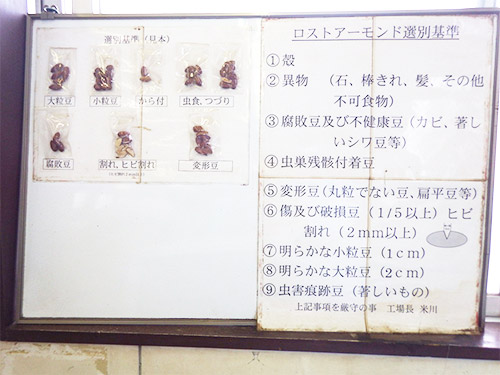 選別基準（見本）
大粒豆
小粒豆
から付
虫食、つづり
腐敗豆
割れ、ヒビ割れ
変形豆
ロストアーモンド選別基準
①殻
②異物　（石、棒きれ、髪、その他
不可食物）
③腐敗豆及び不健康豆（カビ、著し
いシワ豆等）
④虫巣残骸付着豆
⑤変形豆（丸粒でない豆、扁平豆等）
⑥傷及び破損豆（1/5以上）ヒビ
割れ（２mm以上）
⑦明らかな小粒豆（1ｃm）
⑧明らかな大粒豆（2ｃm）
⑨虫害痕跡豆（著しいもの）
上記事項を厳守の事　工場長　米川